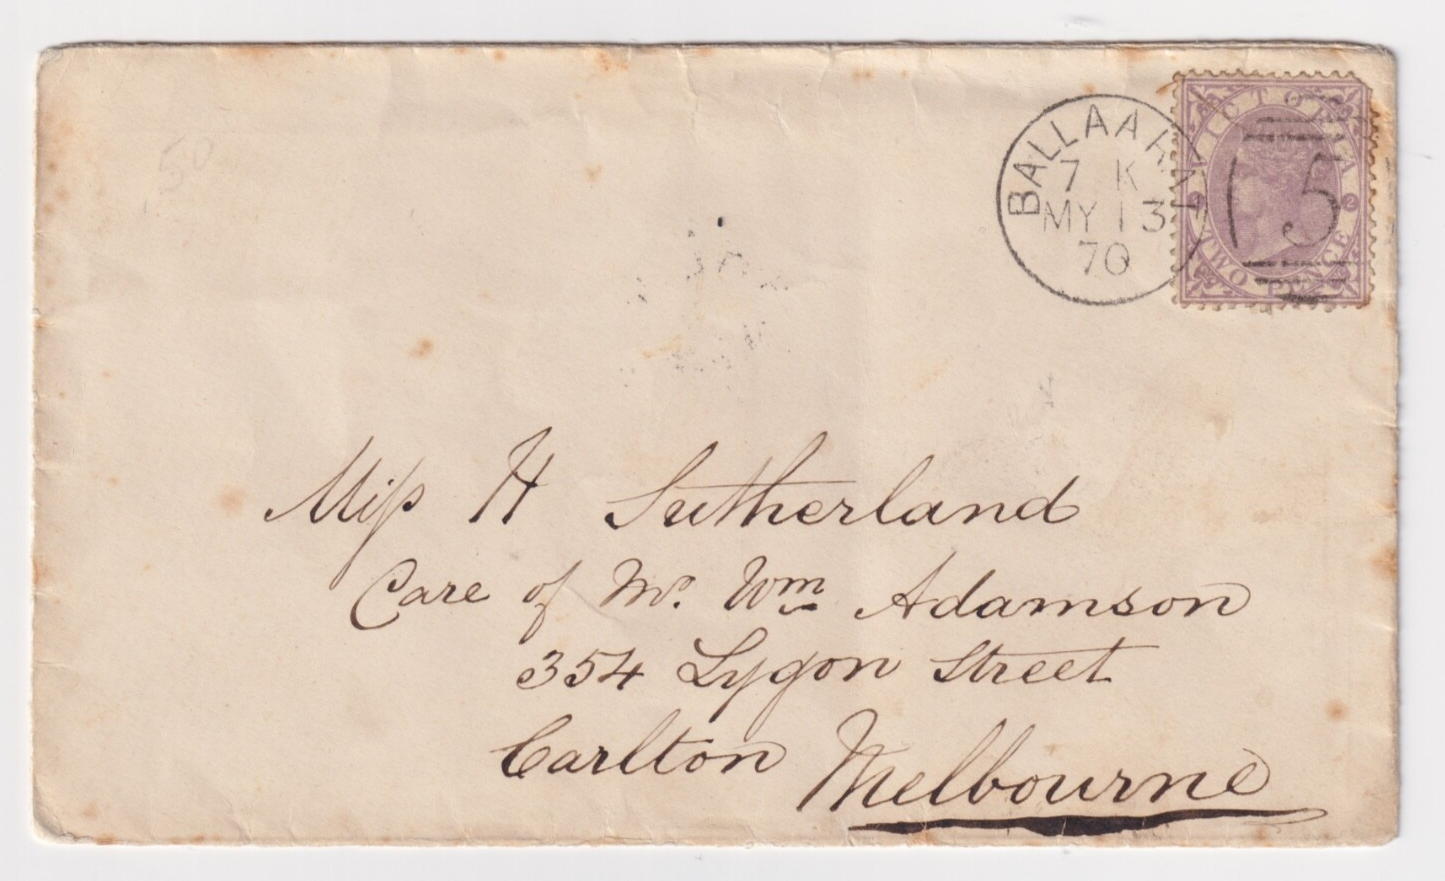 50
BALLAARAT
7 K
MY 13
70
VICTORIA
2 2
TWO PENCE
5
Miss H Sutherland
Care of Mr. Wm Adamson
354 Lygon Street
Carlton Melbourne